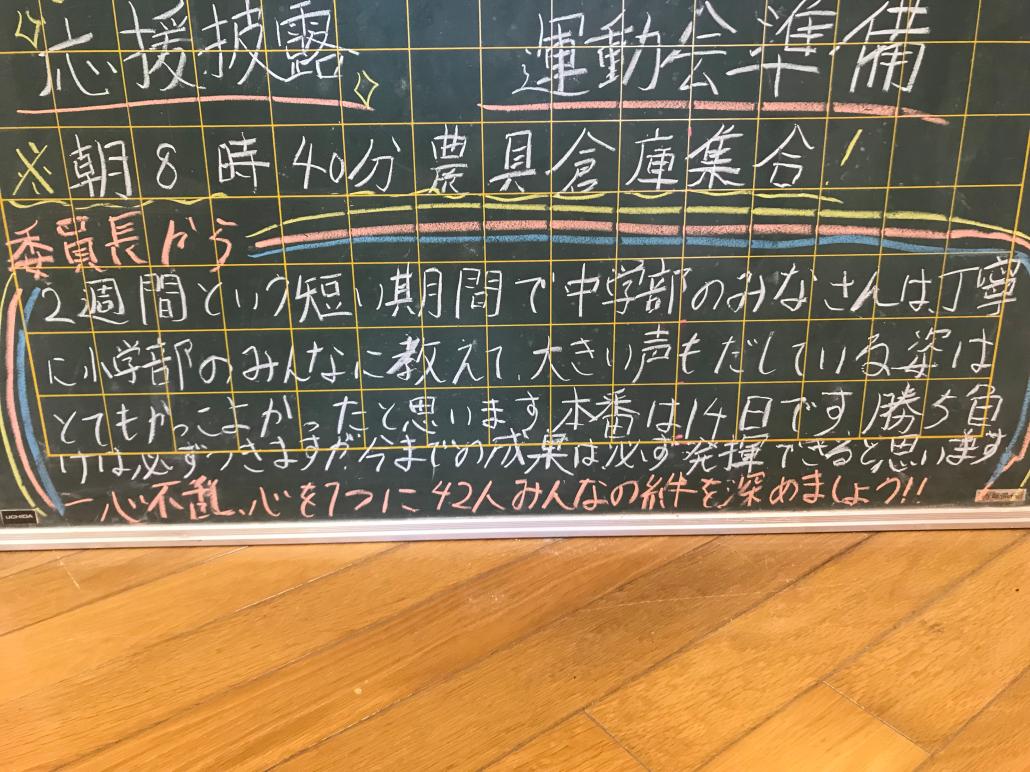 応援披露 運動会準備
※朝8時40分農具倉庫集合!
委員長から
2週間という短い期間で中学部のみなさんは、丁寧
に小学部のみんなに教えて、大きい声もだしている姿は
とてもかっこよかったと思います。本番は14日です。勝ち負
けは必ずつきますが、今までの成果は必ず発揮できると思います
一心不乱、心を1つに42人みんなの絆を深めましょう!!
UCHIDA